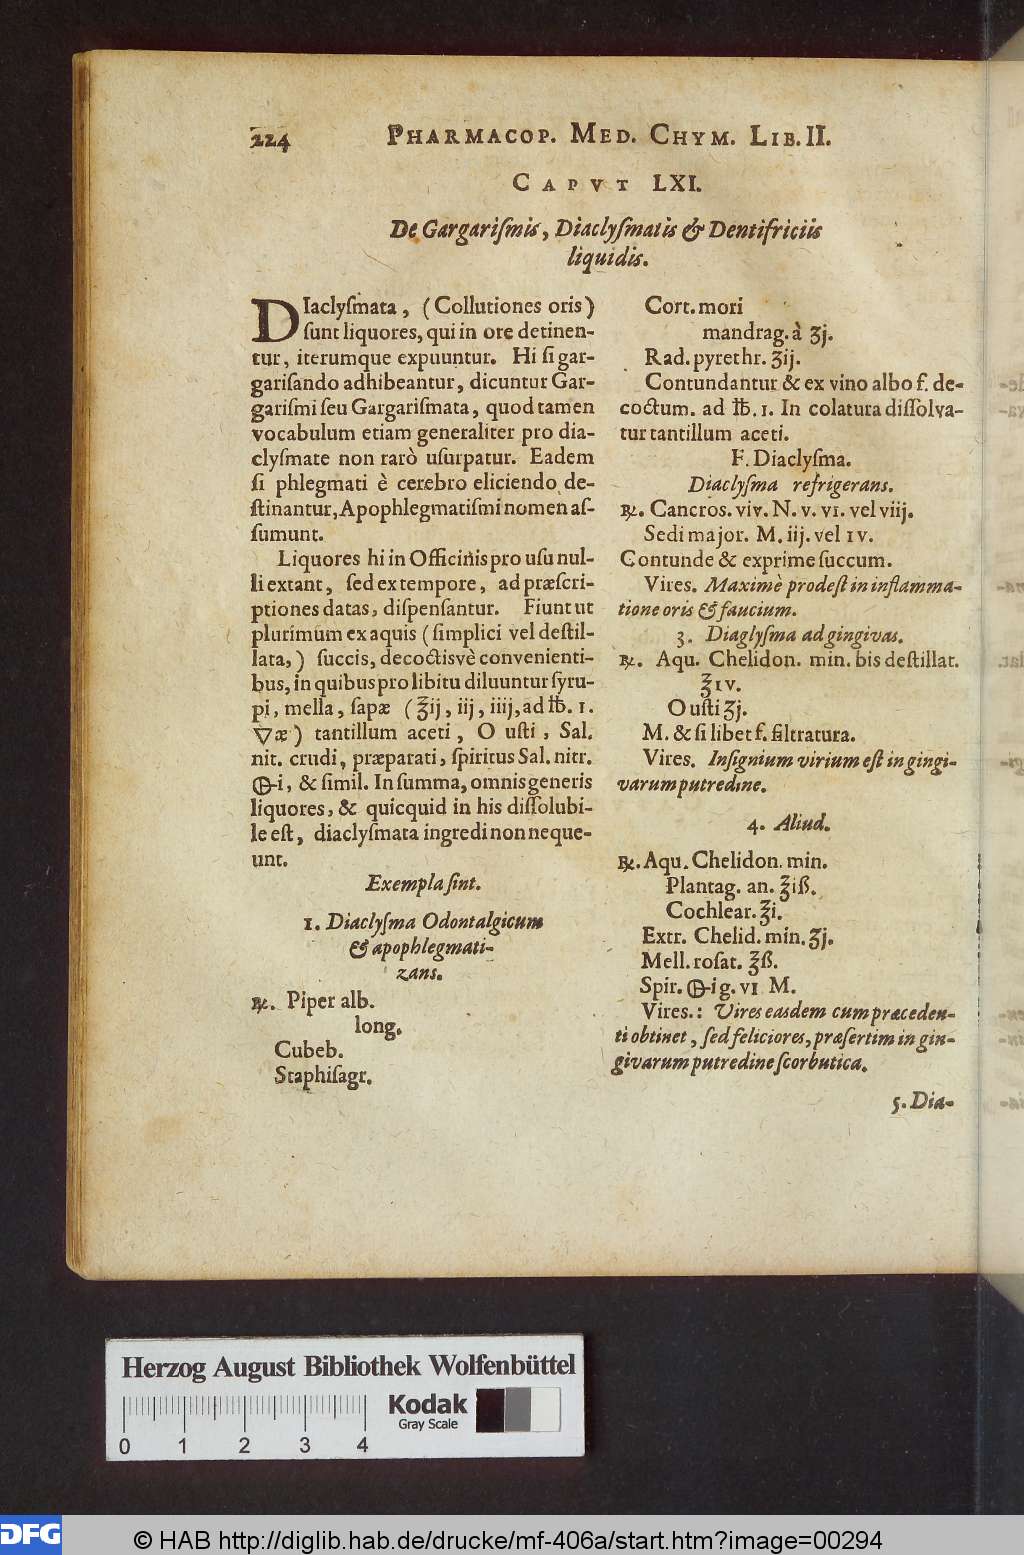 224 PHARMACOP. MED. CHYM. LIB. II.
CAPVT LXI.
De Gargariſmis, Diaclyſmatis & Dentifriciis
liquidis.
DIaclyſmata, (Collutiones oris)
ſunt liquores, qui in ore detinen-
tur, iterumque expuuntur. Hi ſi gar-
gariſando adhibeantur, dicuntur Gar-
gariſmi ſeu Gargariſmata, quod tamen
vocabulum etiam generaliter pro dia-
clyſmate non rarò uſurpatur. Eadem
ſi phlegmati è cerebro eliciendo de-
ſtinantur, Apophlegmatiſmi nomen aſ-
ſumunt.
Liquores hi in Officinis pro uſu nul-
li extant, ſed ex tempore, ad præſcri-
ptiones datas, diſpenſantur. Fiunt ut
plurimum ex aquis (ſimplici vel deſtil-
lata,) ſuccis, decoctisvè convenienti-
bus, in quibus pro libitu diluuntur ſyru-
pi, mella, ſapæ (℥ij, iij, iiij, ad ℔. 1.
🜄æ) tantillum aceti, O uſti, Sal.
nit. crudi, præparati, ſpiritus Sal. nitr.
🜖i, & ſimil. In ſumma, omnis generis
liquores, & quicquid in his diſſolubi-
le eſt, diaclyſmata ingredi non neque-
unt.
Exempla ſint.
1. Diaclyſma Odontalgicum
& apophlegmati-
zans.
℞. Piper alb.
long.
Cubeb.
Staphiſagr.
Cort. mori
mandrag. à ʒj.
Rad. pyrethr. ʒij.
Contundantur & ex vino albo f. de-
coctum. ad ℔. 1. In colatura diſſolva-
tur tantillum aceti.
F. Diaclyſma.
Diaclyſma refrigerans.
℞. Cancros. viv. N. v. vi. vel viij.
Sedi major. M. iij. vel IV.
Contunde & exprime ſuccum.
Vires. Maximè prodeſt in inflamma-
tione oris & faucium.
3. Diaglyſma ad gingivas.
℞. Aqu. Chelidon. min. bis deſtillat.
℥IV.
O uſti ʒj.
M. & ſi libet f. filtratura.
Vires. Inſignium virium eſt in gingi-
varum putredine.
4. Aliud.
℞. Aqu. Chelidon. min.
Plantag. an. ℥iß.
Cochlear. ℥i.
Extr. Chelid. min. ʒj.
Mell. roſat. ℥ß.
Spir. 🜖i g. VI M.
Vires.: Vires easdem cum præceden-
ti obtinet, ſed feliciores, præſertim in gin-
givarum putredine ſcorbutica.
5. Dia-
Herzog August Bibliothek Wolfenbüttel
0 1 2 3 4
Kodak
Gray Scale
DFG
© HAB http://diglib.hab.de/drucke/mf-406a/start.htm?image=00294